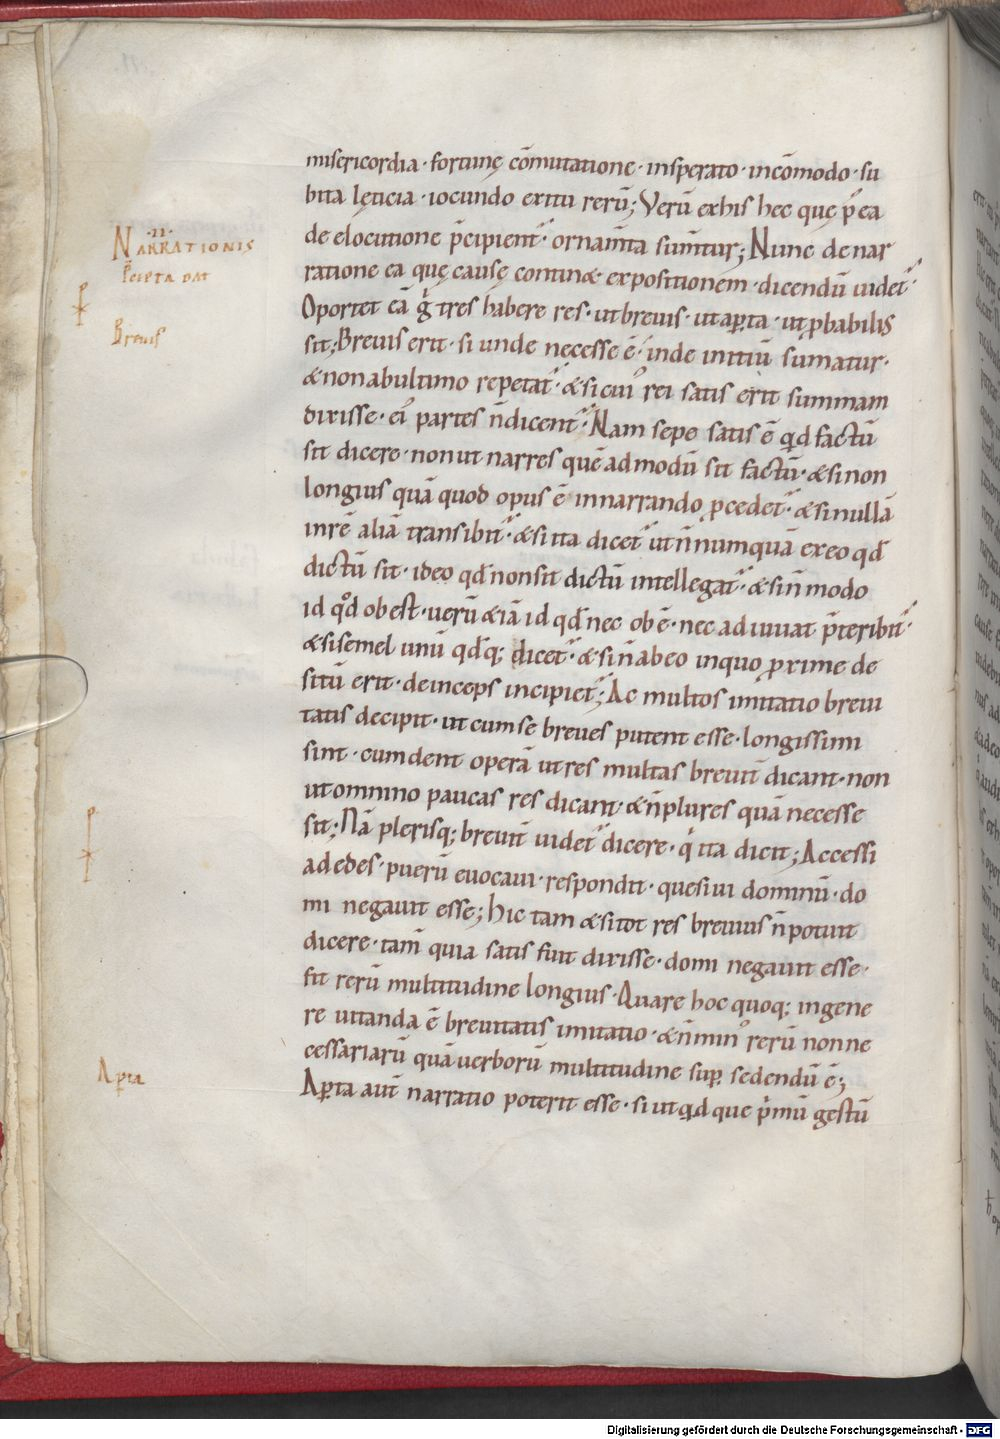 ·II·
NARRATIONIS
p̄cepta dat
Breuis
Ap̱ta
misericordia · fortunę cōmutatione · insperato · incōmodo · su
bita lęticia · iocundo exitu rerū; Verū ex his hec quę p̄ ea
de elocutione p̄cipient᷑ · ornam̄ta sum̄tur; Nunc de nar
ratione ea quę causę continæ · expositionem · dicendū uidet᷑·
Oportet eā g̍ tres habere res · ut breuis · ut ap̱ta · ut ꝓbabilis
sit; Breuis erit · si unde necesse ē · inde initiū sumatur ·
& non ab ultimo repetat᷑ · & si cui᷒ rei satis erit summam
dixisse · ei᷒ partes n̄ dicent᷑ · Nam sepe satis ē qd̄ factū
sit dicere · non ut narres quēadmodū sit factū · & si non
longius quā quod opus ē in narrando ꝓcedet᷑ · & si nullā
in rē aliā transibit᷑ · & si ita dicet᷑ ut n̄numquā ex eo qd̄
dictū sit · ideo qd̄ non sit dictū intellegat᷑ · & si n̄ modo
id qd̄ obest · uerū & iā id qd̄ nec ob ē · nec adiuuat p̄teribit᷑ ·
& si semel unū qd̄q; dicet᷑ · & si n̄ ab eo in quo ꝓxime de
sitū erit · deinceps incipiet᷑; Ac multos imitatio breui
tatis decipit · ut cum se breues putent esse · longissimi
sint · cum dent operā ut res multas breuit̄ dicant · non
ut omnino paucas res dicant · & n̄ plures quā necesse
sit; Nā plerisq; breuit̄ uidet᷑ dicere · q̍ ita dicit; Accessi
ad edes · puerū euocaui · respondit · quesiui dominū · do
mi negauit esse; hic tam & si tot res breuius n̄ potuit
dicere · tam̄ quia satis fuit dixisse · domi negauit esse ·
fit rerū multitudine longius · Quare hoc quoq; in gene
re uitanda ē breuitatis imitatio · & n̄ min᷒ rerū non ne
cessariarū quā uerborū multitudine sup̱ sedendū ē;
Ap̱ta aut̄ narratio poterit esse · si ut qd̄ que p̍mū gestū
Digitalisierung gefördert durch die Deutsche Forschungsgemeinschaft - DFG